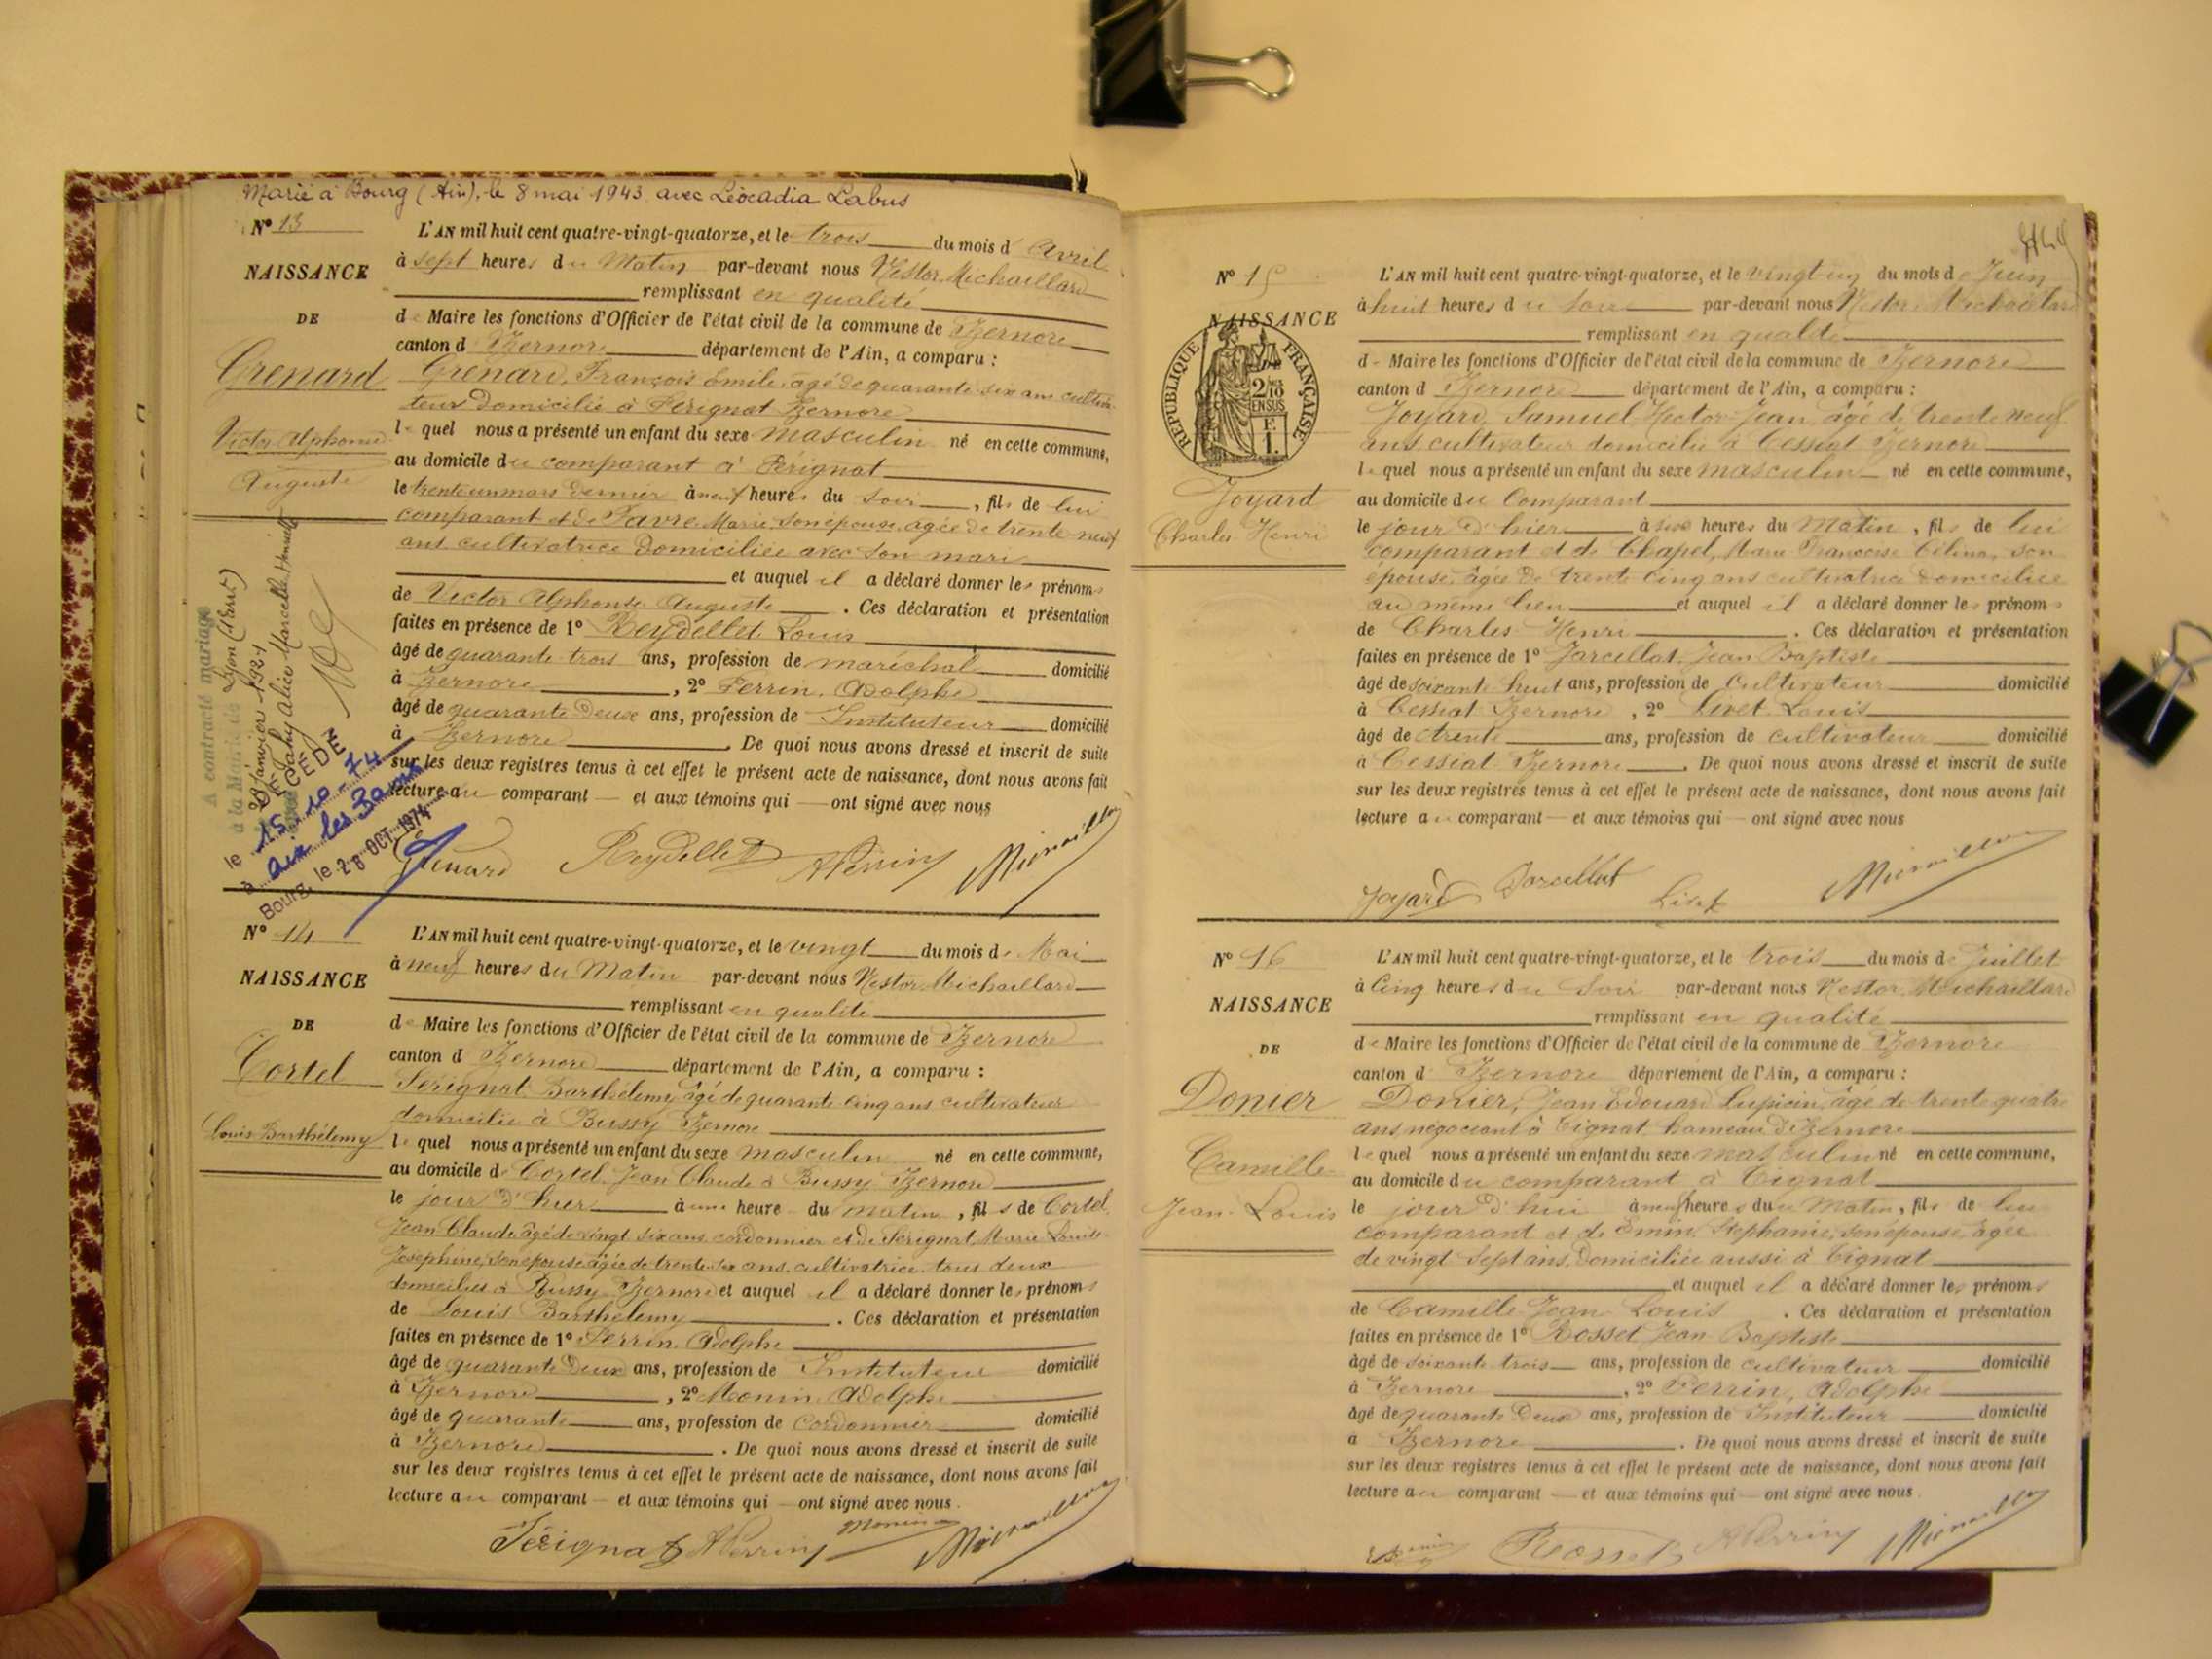 Marié à Bourg (Ain), le 8 mai 1943 avec Léocadia Labus
N° 13
NAISSANCE
DE
Grenard
Victor Alphonse
Auguste
A contracté mariage
à la Mairie de Lyon
Janvier 1921
avec Alice Marcelle Henriette
DÉCÉDÉ
le 15.10.74
à Aix les Bains
Bourg, le 28 OCT. 1974
L'AN mil huit cent quatre-vingt-quatorze, et le trois du mois d'Avril
à sept heures du Matin par-devant nous Nestor Michaillard
remplissant en qualité
de Maire les fonctions d'Officier de l'état civil de la commune de Izernore
canton d'Izernore département de l'Ain, a comparu :
Grenard, François Emile, âgé de quarante six ans cultiva-
teur domicilié à Pérignat Izernore
lequel nous a présenté un enfant du sexe masculin né en cette commune,
au domicile du comparant à Pérignat
le trente un mars dernier à neuf heures du soir, fils de lui
comparant et de Favre Marie, son épouse, âgée de trente-neuf
ans cultivatrice domiciliée avec son mari
et auquel il a déclaré donner les prénoms
de Victor Alphonse Auguste. Ces déclaration et présentation
faites en présence de 1° Reydellet Louis
âgé de quarante trois ans, profession de maréchal domicilié
à Izernore, 2° Perrin, Adolphe
âgé de quarante Deux ans, profession de Instituteur domicilié
à Izernore. De quoi nous avons dressé et inscrit de suite
sur les deux registres tenus à cet effet le présent acte de naissance, dont nous avons fait
lecture au comparant et aux témoins qui ont signé avec nous
Grenard Reydellet APerrin Michaillard
N° 14
NAISSANCE
DE
Cortel
Louis Barthélemy
L'AN mil huit cent quatre-vingt-quatorze, et le vingt du mois de Mai
à neuf heures du Matin par-devant nous Nestor Michaillard
remplissant en qualité
de Maire les fonctions d'Officier de l'état civil de la commune de Izernore
canton d'Izernore département de l'Ain, a comparu :
Sérignat Barthélemy âgé de quarante cinq ans cultivateur
domicilié à Bussy Izernore
lequel nous a présenté un enfant du sexe masculin né en cette commune,
au domicile de Cortel Jean Claude à Bussy Izernore
le jour d'hier à une heure du matin, fils de Cortel
Jean Claude âgé de vingt six ans cordonnier et de Sérignat Marie Louise
Joséphine, son épouse âgée de trente ans cultivatrice tous deux
domiciliés à Bussy Izernore et auquel il a déclaré donner les prénoms
de Louis Barthélemy. Ces déclaration et présentation
faites en présence de 1° Perrin, Adolphe
âgé de quarante Deux ans, profession de Instituteur domicilié
à Izernore, 2° Monin, Adolphe
âgé de quarante ans, profession de Cordonnier domicilié
à Izernore. De quoi nous avons dressé et inscrit de suite
sur les deux registres tenus à cet effet le présent acte de naissance, dont nous avons fait
lecture au comparant et aux témoins qui ont signé avec nous.
Sérignat APerrin Monin Michaillard
N° 15
NAISSANCE
RÉPUBLIQUE FRANÇAISE
Joyard
Charles Henri
L'AN mil huit cent quatre-vingt-quatorze, et le vingt un du mois de Juin
à huit heures du soir par-devant nous Nestor Michaillard
remplissant en qualité
de Maire les fonctions d'Officier de l'état civil de la commune de Izernore
canton d'Izernore département de l'Ain, a comparu :
Joyard, Samuel Hector Jean, âgé de trente neuf
ans cultivateur domicilié à Cessiat Izernore
lequel nous a présenté un enfant du sexe masculin né en cette commune,
au domicile du Comparant
le jour d'hier à six heures du Matin, fils de lui
comparant et de Chapel, Marie Françoise Célina, son
épouse, âgée de trente cinq ans cultivatrice domiciliée
au même lieu et auquel il a déclaré donner les prénoms
de Charles Henri. Ces déclaration et présentation
faites en présence de 1° Jarcellat, Jean Baptiste
âgé de soixante huit ans, profession de Cultivateur domicilié
à Cessiat Izernore, 2° Livet Louis
âgé de trente ans, profession de cultivateur domicilié
à Cessiat Izernore. De quoi nous avons dressé et inscrit de suite
sur les deux registres tenus à cet effet le présent acte de naissance, dont nous avons fait
lecture au comparant et aux témoins qui ont signé avec nous
Joyard Jarcellat Livet Michaillard
N° 16
NAISSANCE
DE
Donier
Camille
Jean Louis
L'AN mil huit cent quatre-vingt-quatorze, et le trois du mois de Juillet
à Cinq heures du Soir par-devant nous Nestor Michaillard
remplissant en qualité
de Maire les fonctions d'Officier de l'état civil de la commune de Izernore
canton d'Izernore département de l'Ain, a comparu :
Donier, Jean Edouard Lupicin, âgé de trente quatre
ans, négociant à Tignat hameau d'Izernore
lequel nous a présenté un enfant du sexe masculin né en cette commune,
au domicile du comparant à Tignat
le jour d'hui à neuf heures du Matin, fils de lui
comparant et de Emin Stéphanie, son épouse, âgée
de vingt sept ans, Domiciliée aussi à Tignat
et auquel il a déclaré donner les prénoms
de Camille Jean Louis. Ces déclaration et présentation
faites en présence de 1° Rosset Jean Baptiste
âgé de soixante trois ans, profession de cultivateur domicilié
à Izernore, 2° Perrin, Adolphe
âgé de quarante Deux ans, profession de Instituteur domicilié
à Izernore. De quoi nous avons dressé et inscrit de suite
sur les deux registres tenus à cet effet le présent acte de naissance, dont nous avons fait
lecture au comparant et aux témoins qui ont signé avec nous.
Rosset APerrin Michaillard